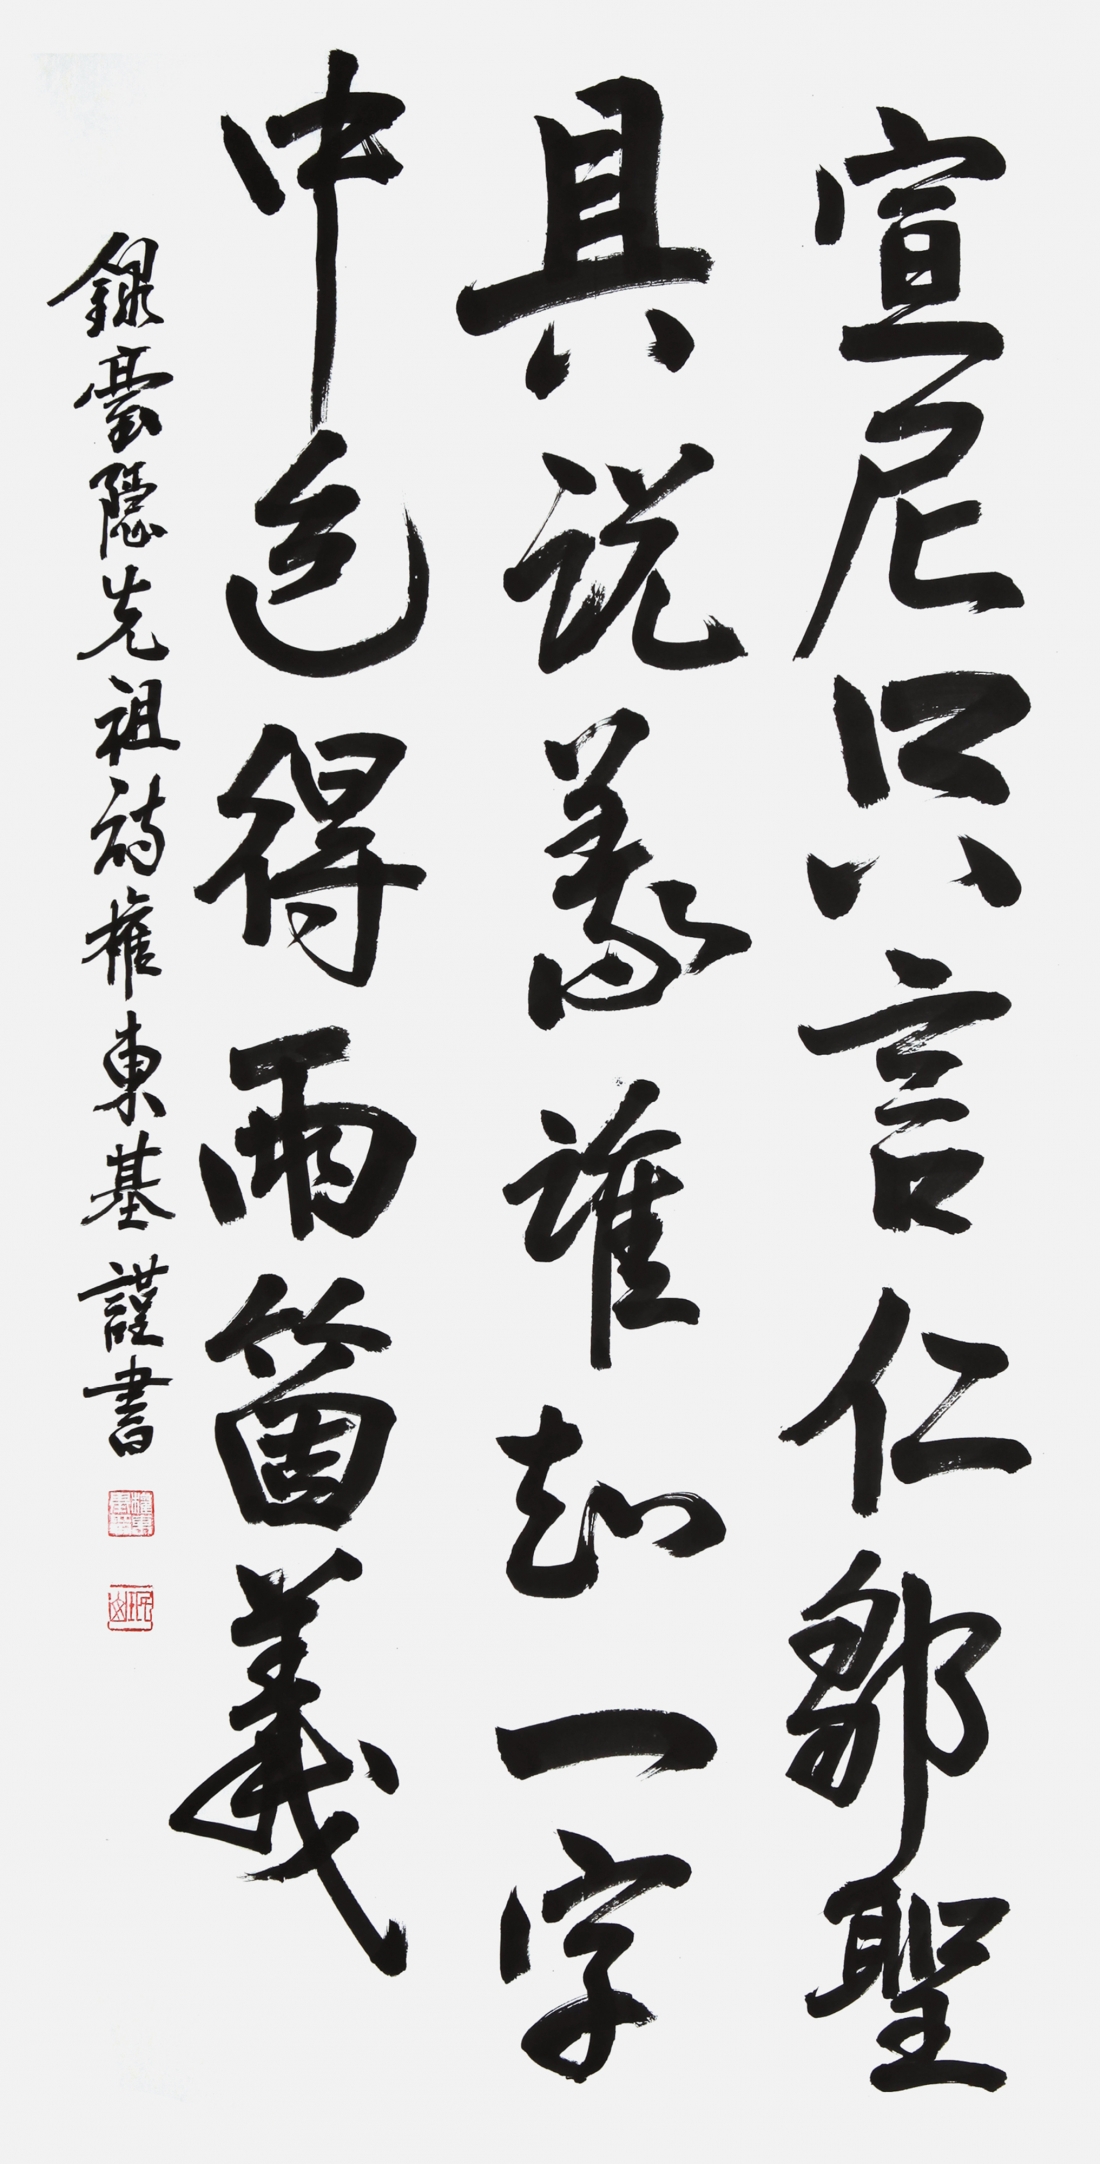 宣尼只言仁鄒聖
具說義誰知一字
中包得兩箇義
錄臺隱先祖詩權東基謹書